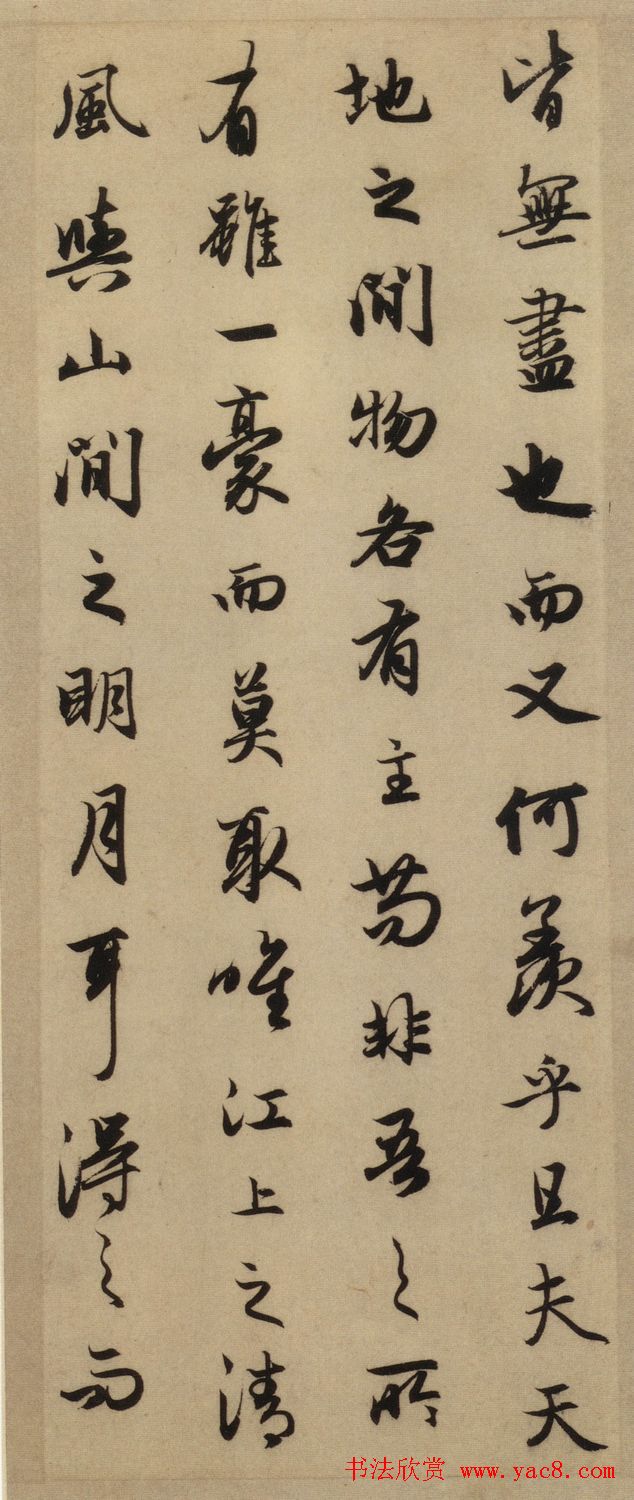 皆無盡也而又何羨乎且夫天
地之間物各有主茍非吾之所
有雖一豪而莫取唯江上之清
風與山間之明月耳得之而
书法欣赏 www.yac8.com